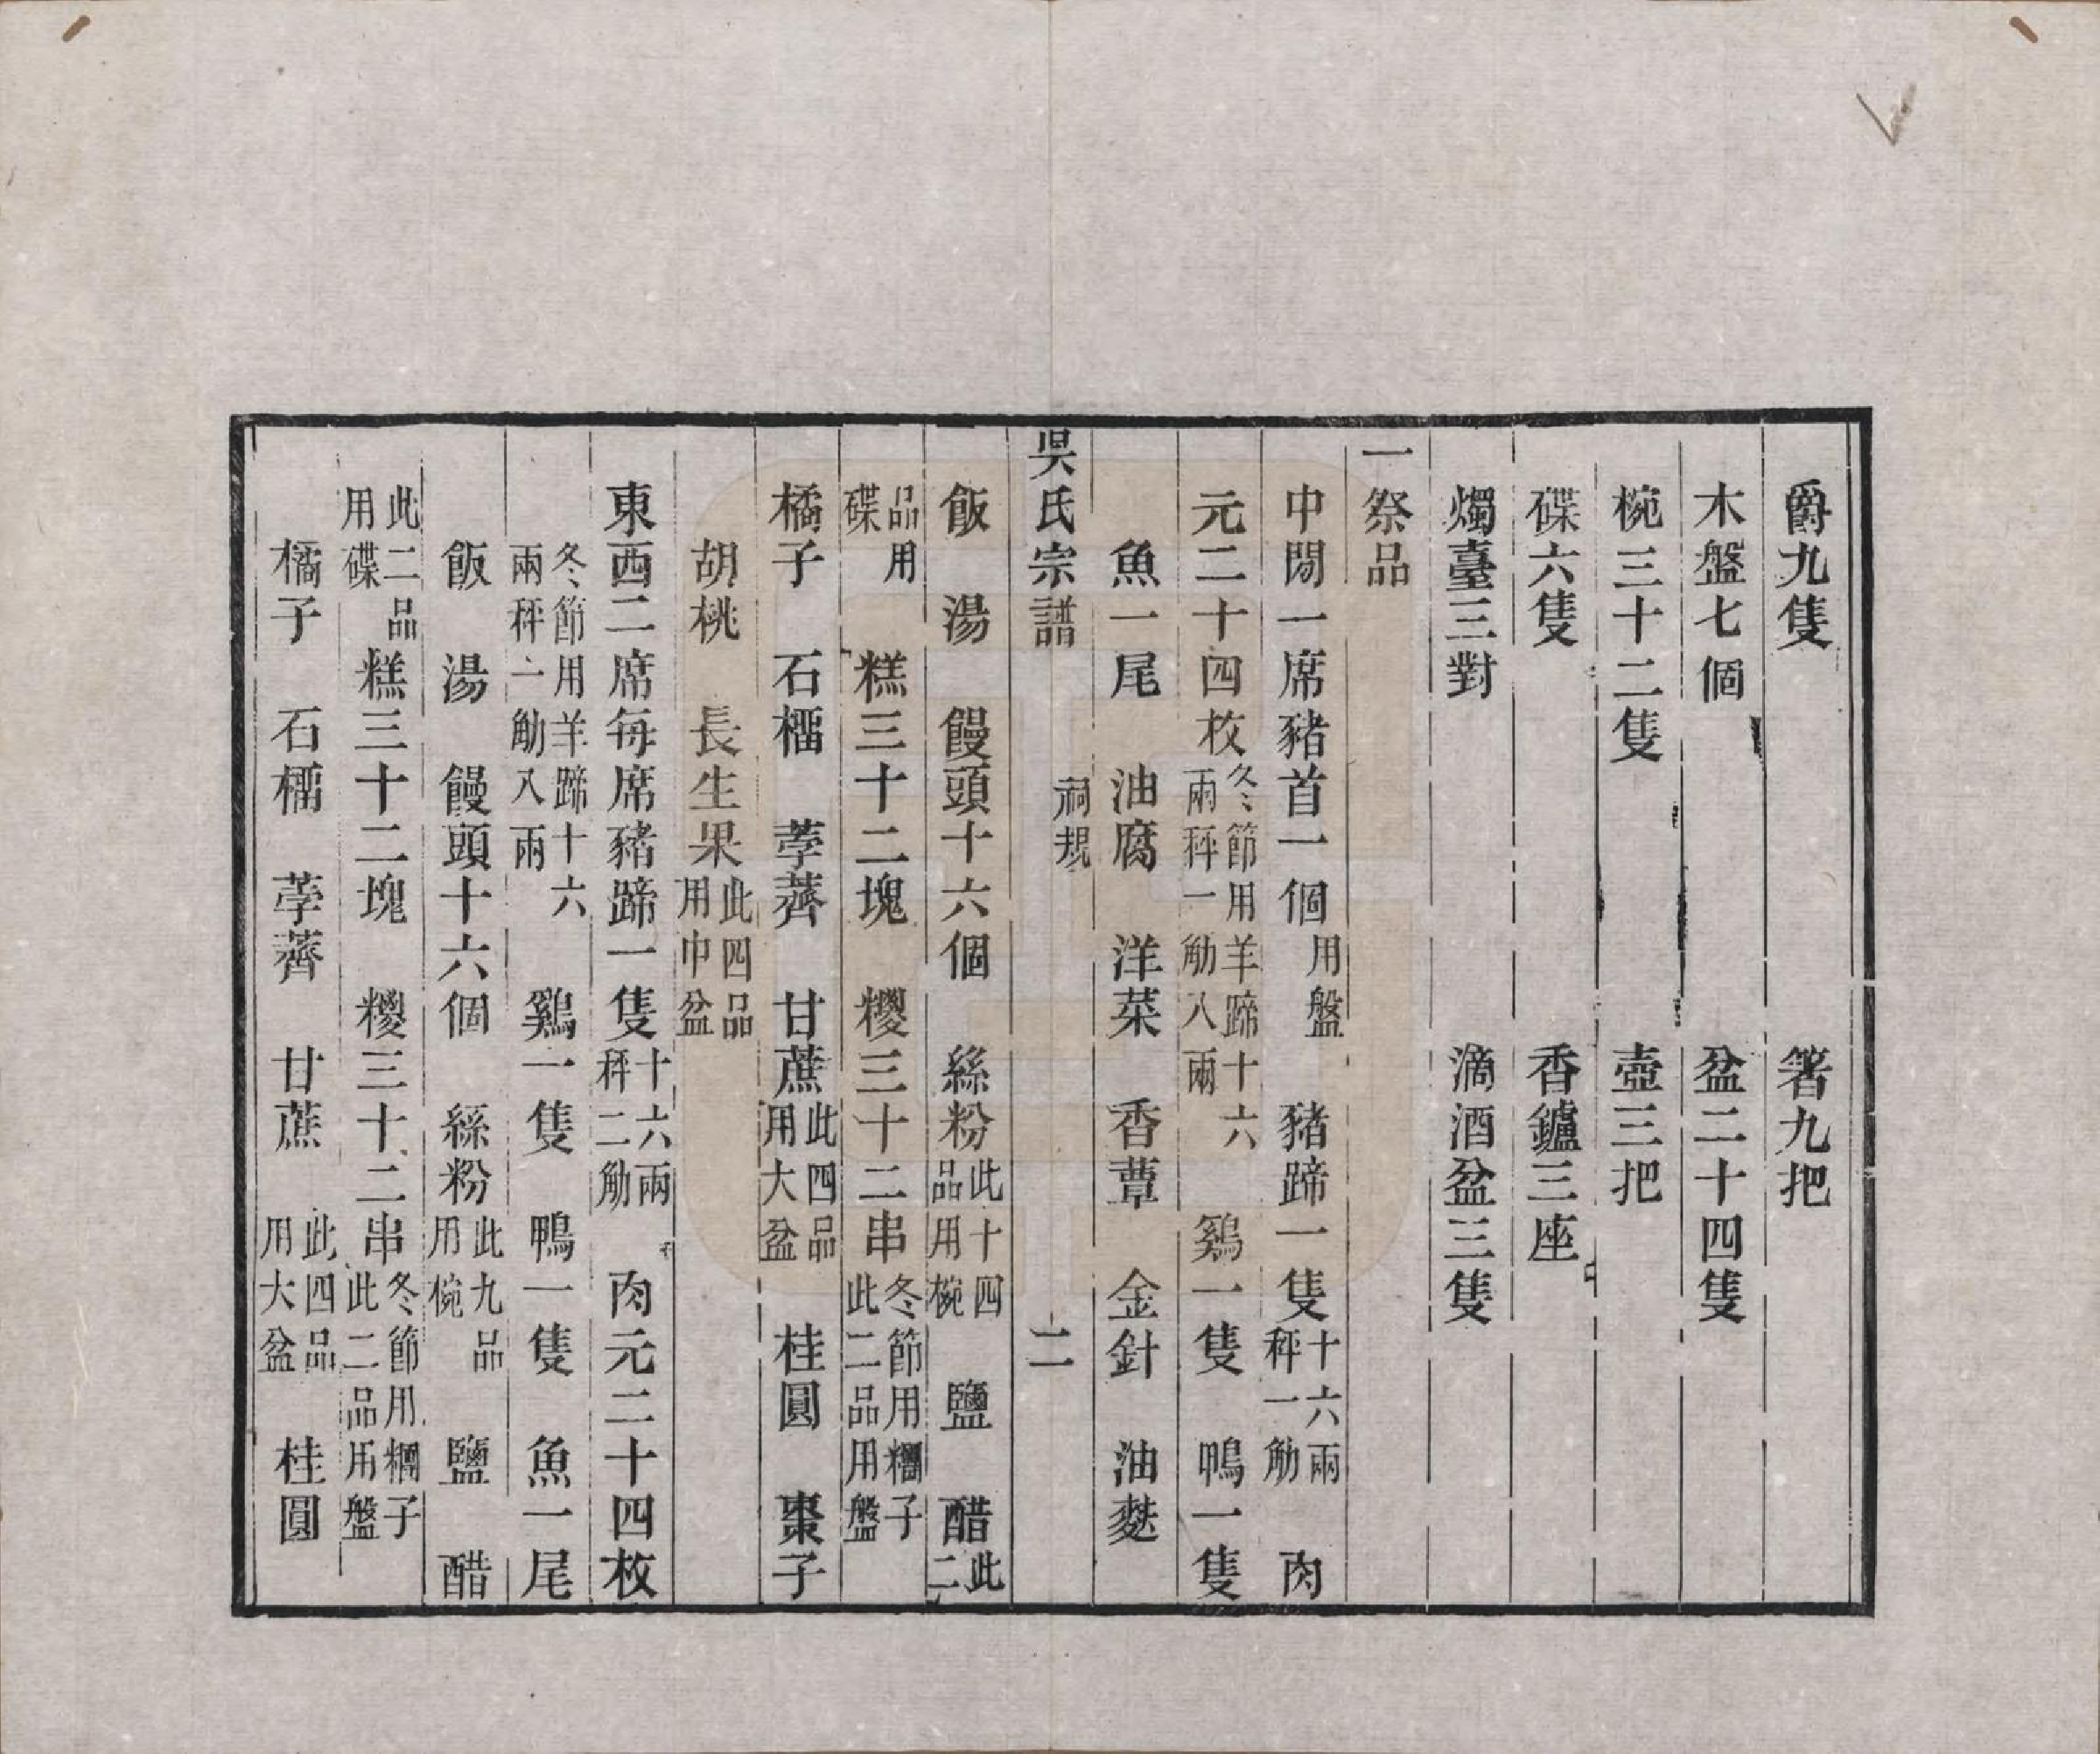 爵九隻　箸九把
木盤七個　盆二十四隻
椀三十二隻　壺三把
碟六隻　香鑪三座
燭臺三對　滴酒盆三隻
一祭品
中閒一席豬首一個用盤　豬蹄一隻十六兩秤一觔　肉
元二十四枚冬節用羊蹄十六兩秤一觔八兩　鷄一隻　鴨一隻
魚一尾　油腐　洋菜　香蕈　金針　油麪
吳氏宗譜　祠規　二
飯　湯　饅頭十六個　絲粉此十四品用椀　鹽　醋此二
品用碟　糕三十二塊　糭三十二串冬節用糰子此二品用盤
橘子　石橊　荸薺　甘蔗此四品用大盆　桂圓　棗子
胡桃　長生果此四品用中盆
東西二席每席豬蹄一隻十六兩秤二觔　肉元二十四枚
冬節用羊蹄十六兩秤一觔八兩　鷄一隻　鴨一隻　魚一尾
飯　湯　饅頭十六個　絲粉此九品用椀　鹽　醋
此二品用碟　糕三十二塊　糭三十二串冬節用糰子此二品用盤
橘子　石橊　荸薺　甘蔗此四品用大盆　桂圓